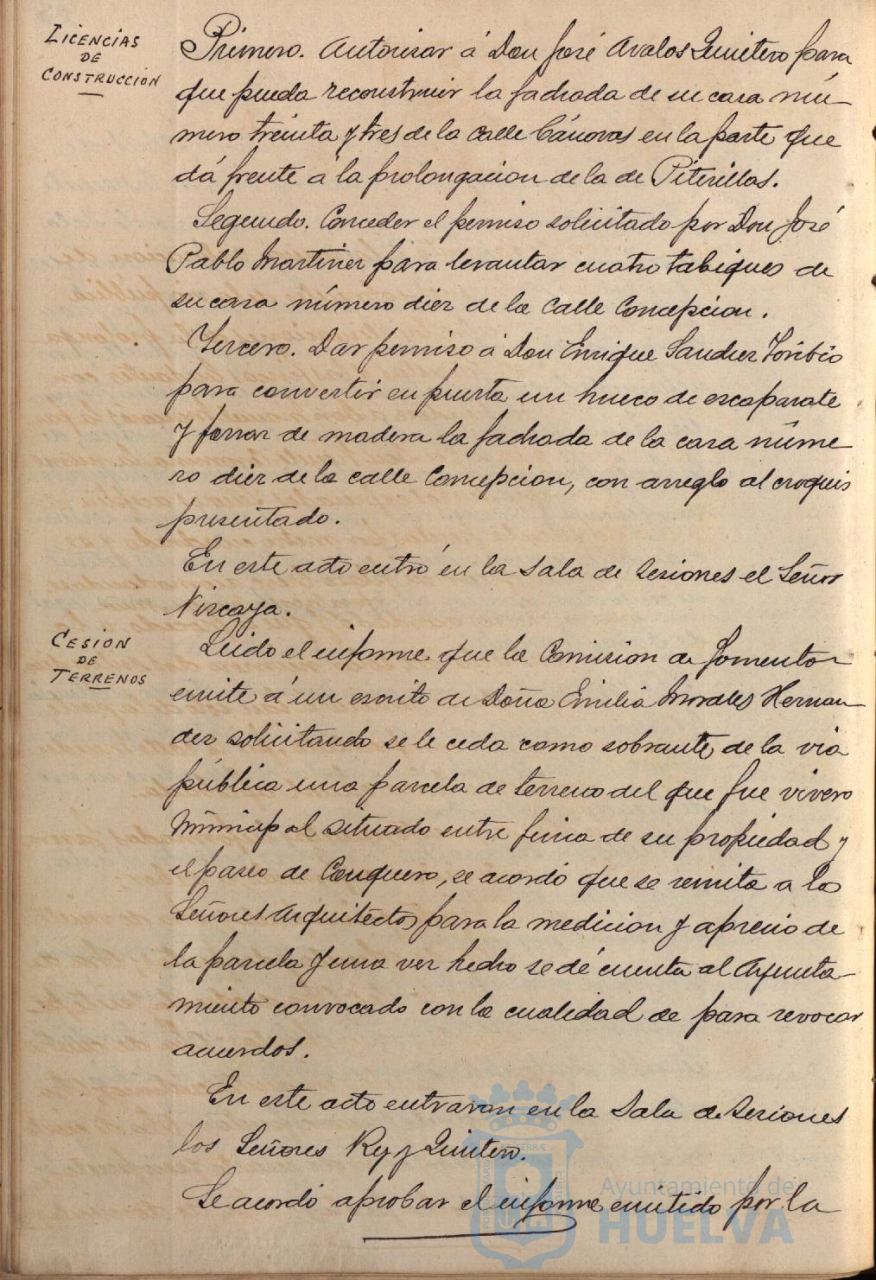 LICENCIAS
DE
CONSTRUCCIÓN
Primero. Autorisar á Don José Avalos Quintero para
que pueda reconstruir la fachada de su casa nú-
mero treinta y tres de la calle Cánovas en la parte que
dá frente á la prolongacion de la de Piterillas.
Segundo. Conceder el permiso solicitado por Don José
Pablo Martinez para levantar cuatro tabiques de
su casa número diez de la Calle Concepcion.
Tercero. Dar permiso á Don Enrique Sanchez Toribio
para convertir en puerta un hueco de escaparate
y forrar de madera la fachada de la casa núme
ro diez de la calle Concepcion, con arreglo al croquis
presentado.
En este acto entró en la Sala de Sesiones el Señor
Vizcaya.
CESION
DE
TERRENOS
Leido el informe que la Comision de Fomento
emite á un escrito de Doña Emilia Morales Hernan
dez solicitando se le ceda como sobrante de la via
pública una parcela de terreno del que fue vivero
Municipal situado entre finca de su propiedad y
el paseo de Conquero, se acordó que se remita a los
Señores Arquitectos para la medicion y aprecio de
la parcela y una vez hecho se dé cuenta al Ayunta-
miento convocado con la cualidad de para revocar
acuerdos.
En este acto entraron en la Sala de Sesiones
los Señores Rey y Quintero.
Se acordó aprobar el informe emitido por la
Ayuntamiento de
HUELVA